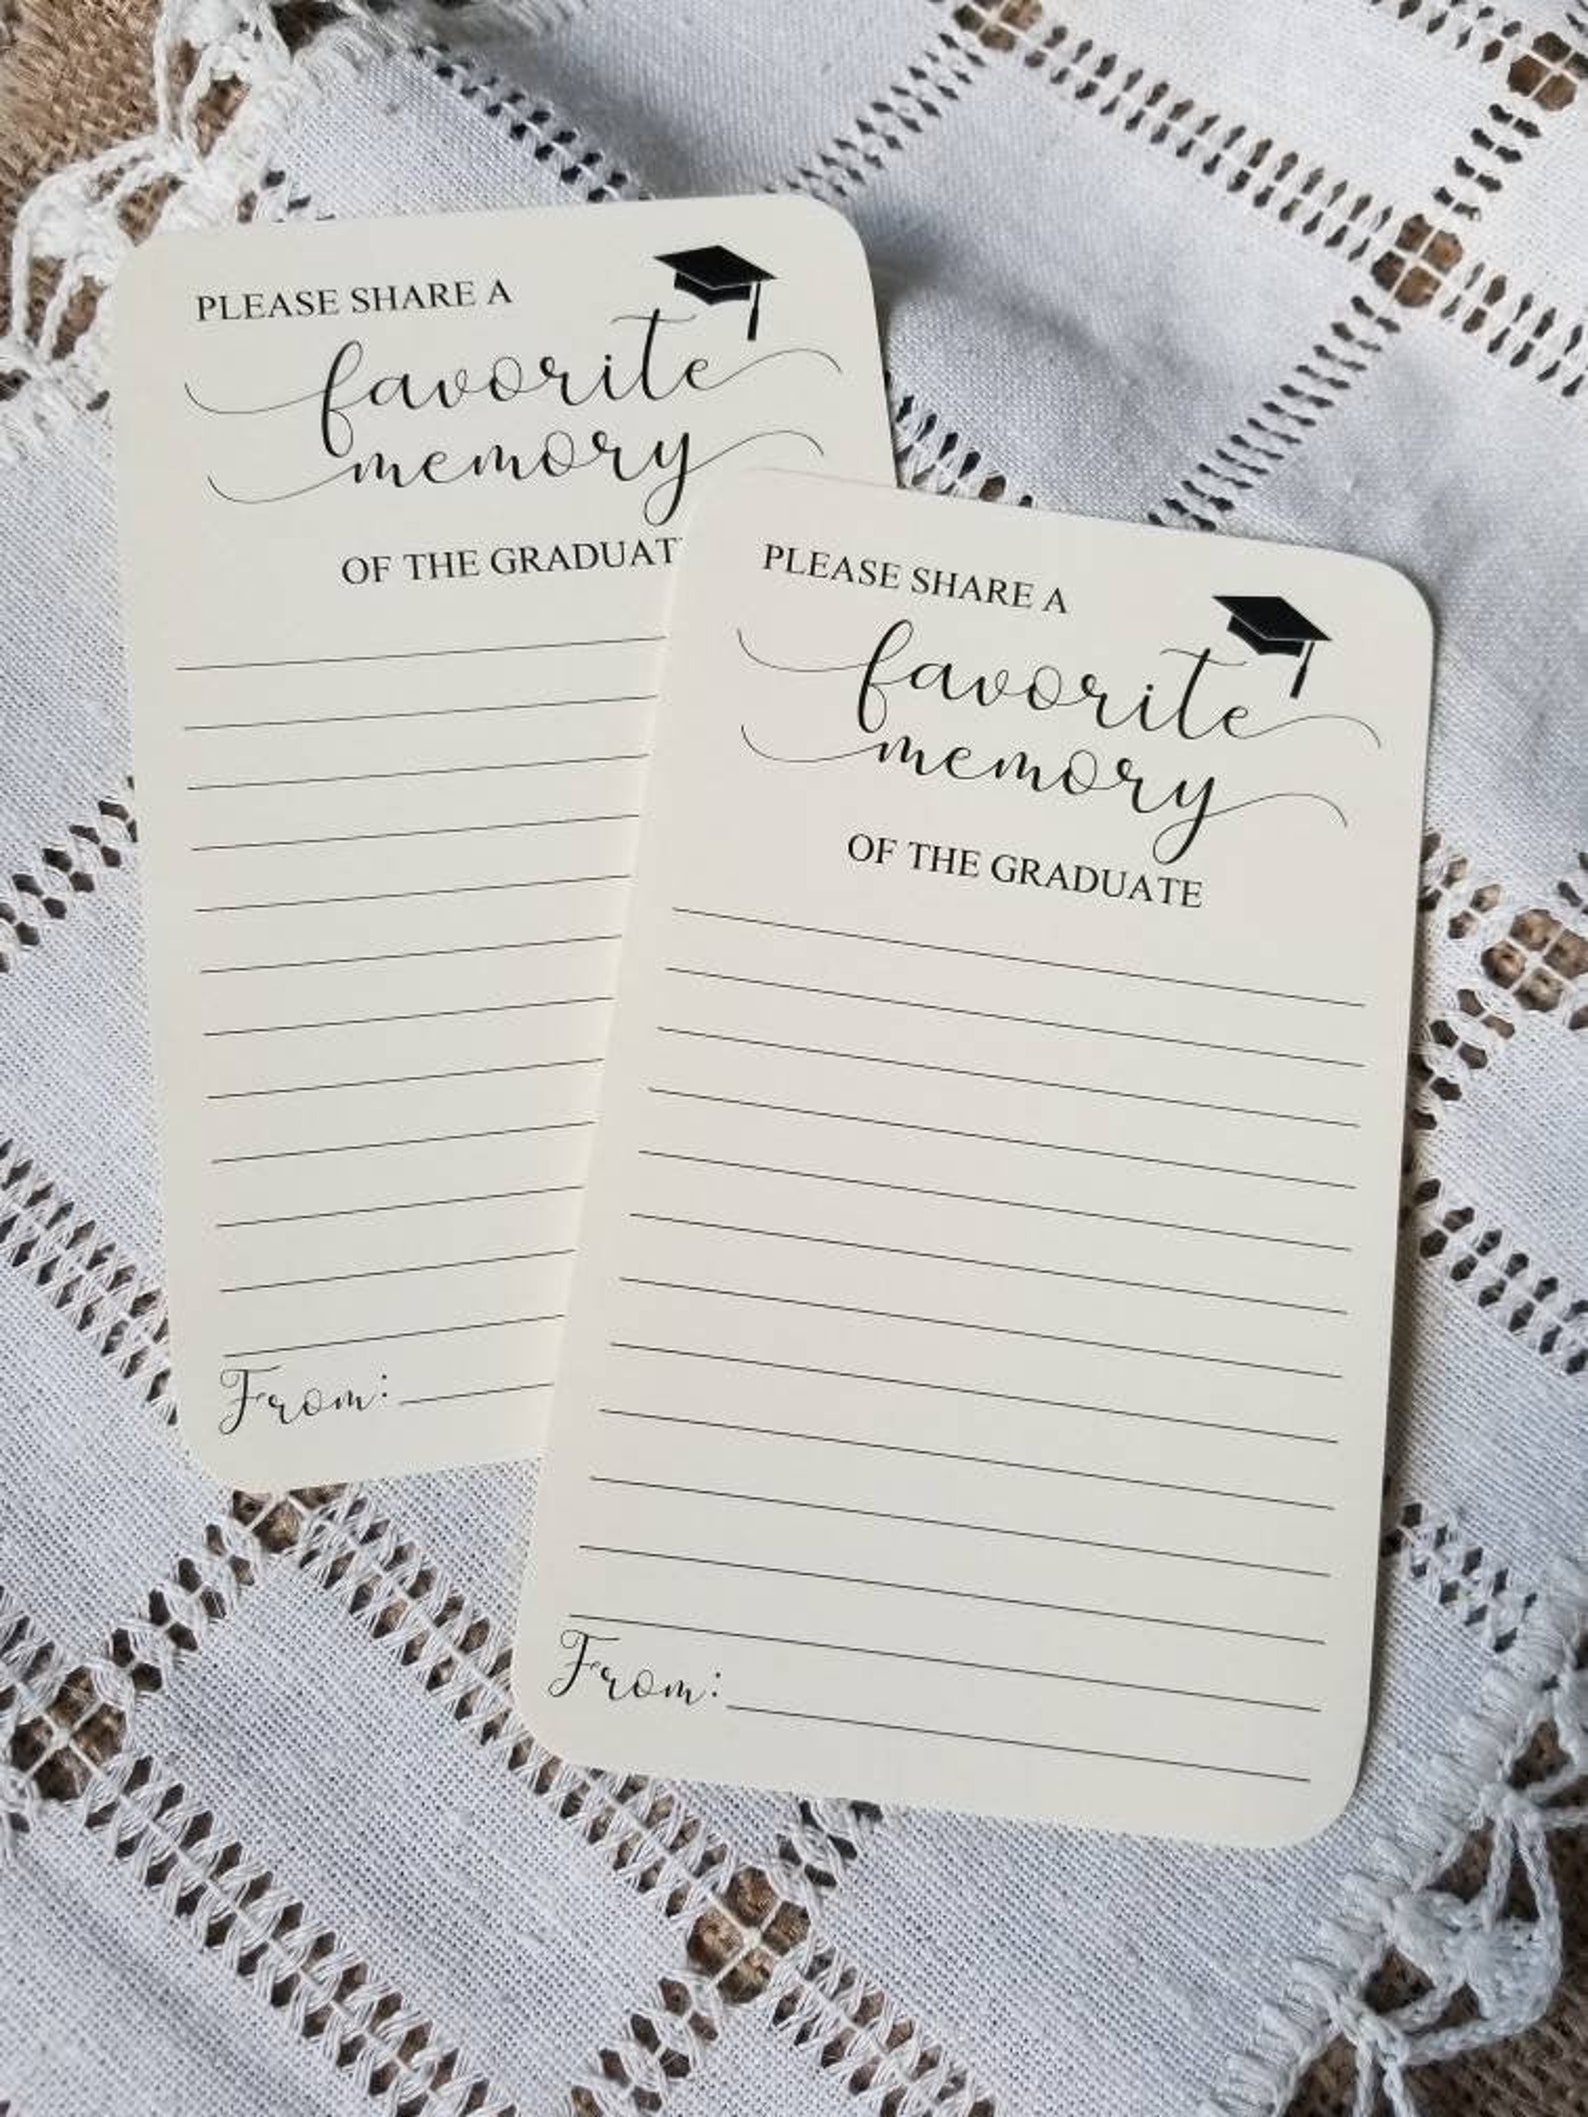 PLEASE SHARE A
favorite
memory
OF THE GRADUAT
From:
PLEASE SHARE A
favorite
memory
OF THE GRADUATE
From: